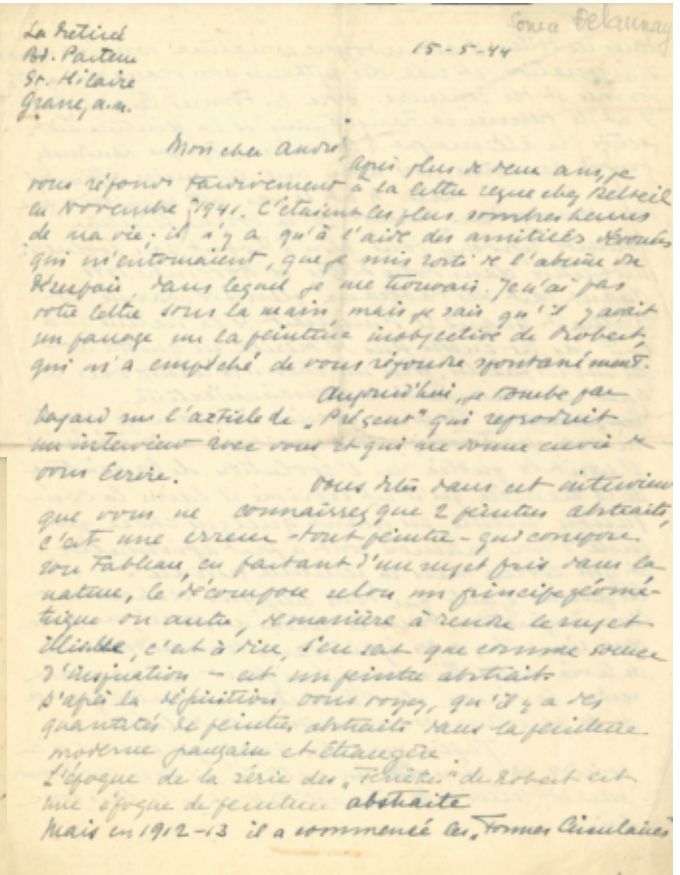 Sonia Delaunay
La Retiré
Bd. Pasteur
St. Hilaire
Grasse, a.m.
15-5-44
Mon cher André,
après plus de deux ans, je
vous réponds tardivement à la lettre reçue chez
en Novembre 1941. C'étaient les plus sombres heures
de ma vie; il n'y a qu'à l'aide des amitiés dévouées
qui m'entouraient, que je suis sorti de l'abîme du
désespoir, dans lequel je me trouvais. Je n'ai pas
votre lettre sous la main, mais je sais qu'il y avait
un passage sur la peinture inobjective de Robert,
qui m'a empêché de vous répondre spontanément.
Aujourd'hui, je tombe par
hasard sur l'article de "Présent" qui reproduit
un interview avec vous et qui me donne envie de
vous écrire.
Vous dites dans cet interview
que vous ne connaissez que 2 peintres abstraits,
c'est une erreur - tout peintre - qui compose
son tableau, en partant d'un sujet pris dans la
nature, le décompose selon un principe géomé-
trique ou autre, de manière à rendre le sujet
illisible, c'est à dire, s'en sert que comme source
d'inspiration - est un peintre abstrait.
D'après la définition vous voyez, qu'il y a des
quantités de peintres abstraits dans la peinture
moderne française et étrangère.
L'époque de la série des "Fenêtres" de Robert est
une époque de peinture abstraite
Mais en 1912-13 il a commencé les "Formes Circulaires